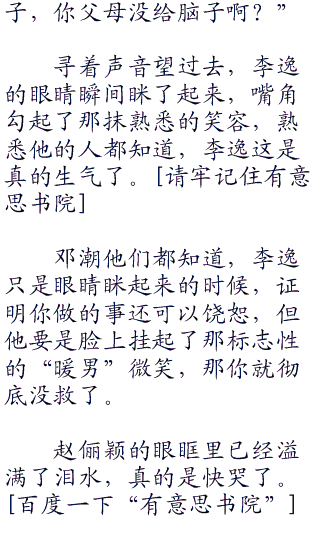 子，你父母没给脑子啊？”
寻着声音望过去，李逸
的眼睛瞬间眯了起来，嘴角
勾起了那抹熟悉的笑容，熟
悉他的人都知道，李逸这是
真的生气了。[请牢记住有意
思书院]
邓潮他们都知道，李逸
只是眼睛眯起来的时候，证
明你做的事还可以饶恕，但
他要是脸上挂起了那标志性
的“暖男”微笑，那你就彻
底没救了。
赵俪颖的眼眶里已经溢
满了泪水，真的是快哭了。
[百度一下“有意思书院”]